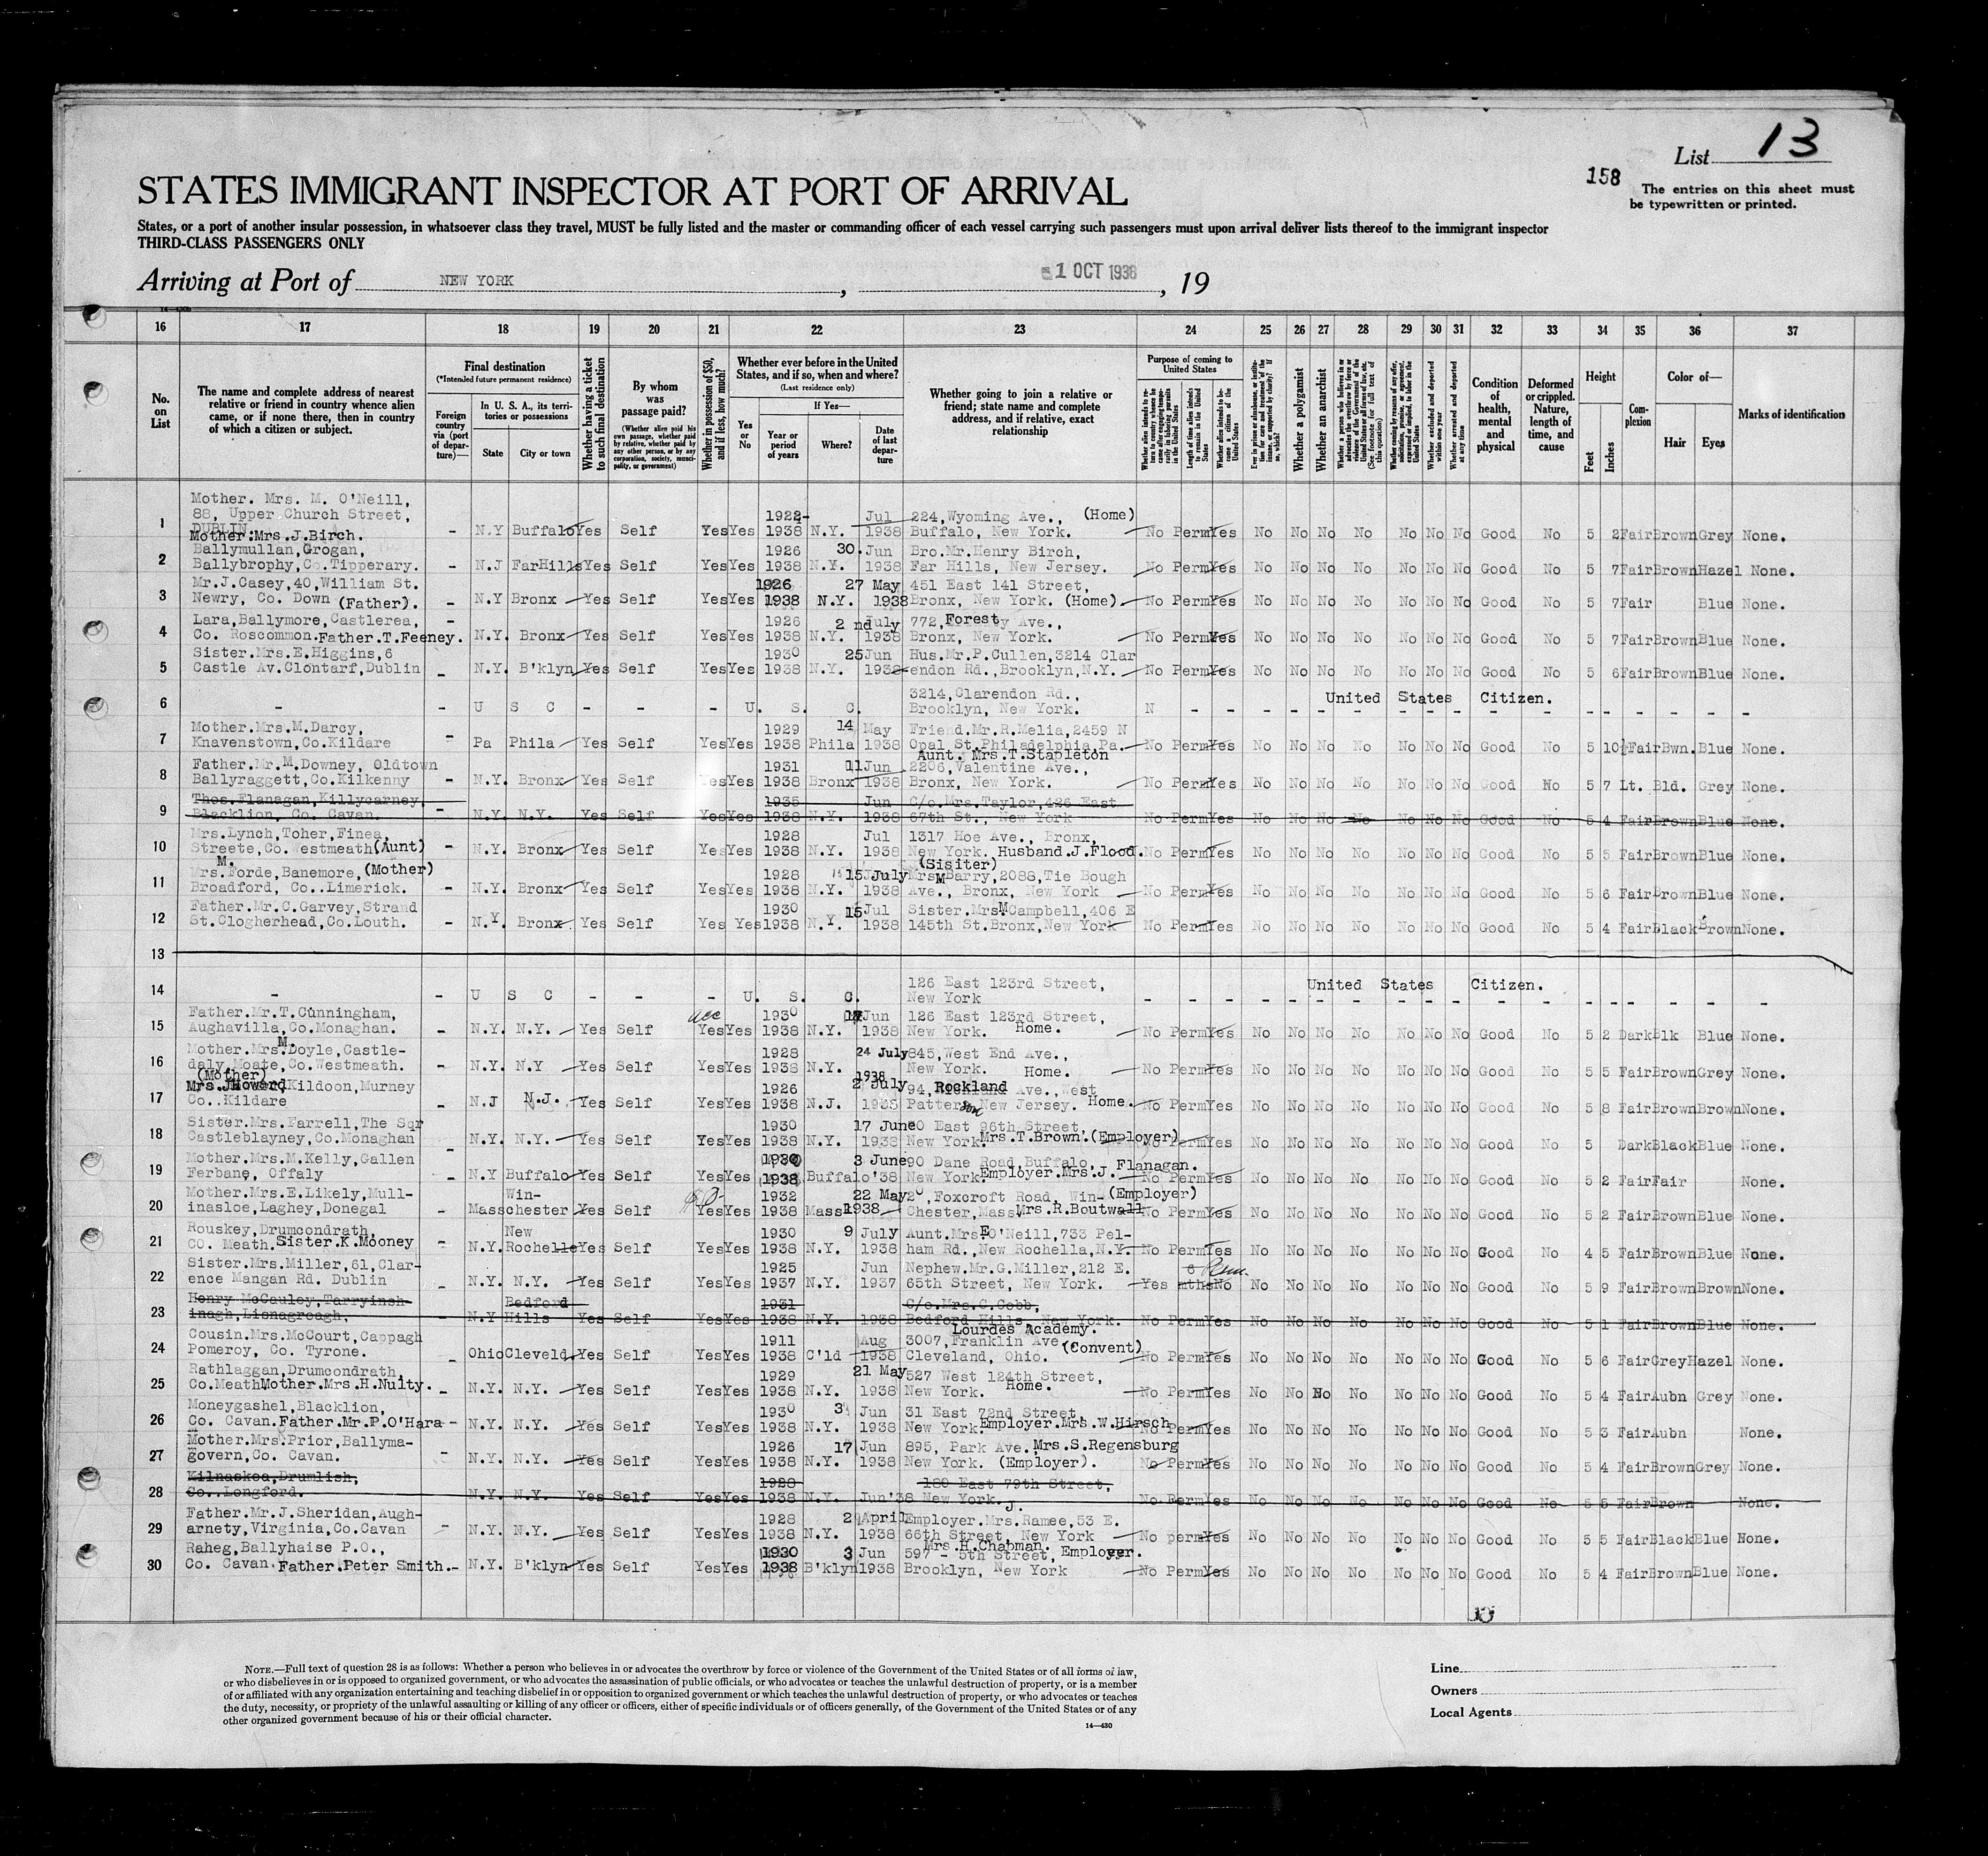 List 13
158
The entries on this sheet must
be typewritten or printed.
STATES IMMIGRANT INSPECTOR AT PORT OF ARRIVAL
States, or a port of another insular possession, in whatsoever class they travel, MUST be fully listed and the master or commanding officer of each vessel carrying such passengers must upon arrival deliver lists thereof to the immigrant inspector
THIRD-CLASS PASSENGERS ONLY
Arriving at Port of NEW YORK, 1 OCT 1938, 19
16 17 18 19 20 21 22 23 24 25 26 27 28 29 30 31 32 33 34 35 36 37
No. on List
The name and complete address of nearest relative or friend in country whence alien came, or if none there, then in country of which a citizen or subject.
Final destination
(*Intended future permanent residence)
Foreign country via (port of departure)—
In U. S. A., its territories or possessions
State
City or town
Whether having a ticket to such final destination
By whom was passage paid?
(Whether alien paid his own passage, whether paid by relative, whether paid by any other person, or by any corporation, society, municipality, or government)
Whether in possession of $50, and if less, how much?
Whether ever before in the United States, and if so, when and where?
(Last residence only)
Yes or No
If Yes—
Year or period of years
Where?
Date of last departure
Whether going to join a relative or friend; state name and complete address, and if relative, exact relationship
Purpose of coming to United States
Length of time alien intends to remain in the United States
Whether alien intends to become a citizen of the United States
Whether a polygamist
Whether an anarchist
Whether excluded and deported within one year
Whether arrested and deported at any time
Condition of health, mental and physical
Deformed or crippled. Nature, length of time, and cause
Height
Feet
Inches
Complexion
Color of—
Hair
Eyes
Marks of identification
1 Mother. Mrs. M. O'Neill, 88, Upper Church Street, DUBLIN. - N.Y Buffalo Yes Self Yes Yes 1922- 1938 N.Y. Jul 1938 224,Wyoming Ave., (Home) Buffalo, New York. No Perm Yes No No No No No No No Good No 5 2 Fair Brown Grey None.
2 Mother.Mrs.J.Birch. Ballymullan,Grogan, Ballybrophy,Co.Tipperary. - N.J FarHills Yes Self Yes Yes 1926 1938 N.Y. 30.Jun 1938 Bro.Mr.Henry Birch, Far Hills, New Jersey. No Perm Yes No No No No No No No Good No 5 7 Fair Brown Hazel None.
3 Mr.J.Casey,40,William St. Newry, Co. Down (Father). - N.Y Bronx Yes Self Yes Yes 1926 1938 N.Y. 27 May 1938 451 East 141 Street, Bronx, New York. (Home) No Perm Yes No No No No No No No Good No 5 7 Fair Blue None.
4 Lara,Ballymore,Castlerea, Co. Roscommon.Father.T.Feeney. - N.Y. Bronx Yes Self Yes Yes 1926 1938 N.Y. 2 nd July 1938 772,Forest Ave., Bronx, New York. No Perm Yes No No No No No No No Good No 5 7 Fair Brown Blue None.
5 Sister.Mrs.E.Higgins,6 Castle Av.Clontarf,Dublin - N.Y. B'klyn Yes Self Yes Yes 1930 1938 N.Y. 25 Jun 1938 Hus.Mr.P.Cullen,3214 Clarendon Rd.,Brooklyn,N.Y. No Perm Yes No No No No No No No Good No 5 6 Fair Brown Blue None.
6 - - U S C - - - U. S. C. 3214,Clarendon Rd., Brooklyn, New York. N - - - United States Citizen. - - -
7 Mother.Mrs.M.Darcy, Knavenstown,Co.Kildare - Pa Phila Yes Self Yes Yes 1929 1938 Phila 14 May 1938 Friend.Mr.R.Melia,2459 N Opal St.Philadelphia,Pa. No Perm Yes No No No No No No No Good No 5 10½ Fair Bwn. Blue None.
8 Father.Mr.M.Downey, Oldtown Ballyraggett,Co.Kilkenny - N.Y. Bronx Yes Self Yes Yes 1931 1938 Bronx 11 Jun 1938 Aunt. Mrs.T.Stapleton 2206,Valentine Ave., Bronx, New York. No Perm Yes No No No No No No No Good No 5 7 Lt. Bld. Grey None.
9 Thos.Flanagan,Killycarney, Blacklion, Co. Cavan. - N.Y. N.Y. Yes Self Yes Yes 1935 1938 N.Y. Jun 1938 C/o.Mrs.Taylor,426 East 67th St., New York No Perm Yes No No No No No No No Good No 5 4 Fair Brown Blue None.
10 Mrs.Lynch,Toher,Finea, Streete,Co.Westmeath(Aunt) - N.Y. Bronx Yes Self Yes Yes 1928 1938 N.Y. Jul 1938 1317 Hoe Ave., Bronx, New York. Husband.J.Flood. No Perm Yes No No No No No No No Good No 5 5 Fair Brown Blue None.
11 Mrs. M. Forde,Banemore,(Mother) Broadford, Co..Limerick. - N.Y. Bronx Yes Self Yes Yes 1928 1938 N.Y. 15 July 1938 (Sisiter) Mrs M Barry,2088,Tie Bough Ave., Bronx, New York No Perm Yes No No No No No No No Good No 5 6 Fair Brown Blue None.
12 Father.Mr.C.Garvey,Strand St.Clogherhead,Co.Louth. - N.Y. Bronx Yes Self Yes Yes 1930 1938 N.Y. 15 Jul 1938 Sister.Mrs M Campbell,406 E 145th St.Bronx,New York No Perm Yes No No No No No No No Good No 5 4 Fair Black Brown None.
13
14 - - U S C - - - U. S. C. 126 East 123rd Street, New York - - - United States Citizen. - - -
15 Father.Mr.T.Cunningham, Aughavilla,Co.Monaghan. - N.Y. N.Y. Yes Self Yes Yes 1930 1938 N.Y. Jun 1938 126 East 123rd Street, New York. Home. No Perm Yes No No No No No No No Good No 5 2 Dark Blk Blue None.
16 Mother.Mrs.M.Doyle,Castledaly,Moate,Co.Westmeath. - N.Y. N.Y Yes Self Yes Yes 1928 1938 N.Y. 24 July 1938 845,West End Ave., New York. Home. No Perm Yes No No No No No No No Good No 5 5 Fair Brown Grey None.
17 (Mother) Mrs.J.Howard,Kildoon,Murney Co..Kildare - N.J N.J. Yes Self Yes Yes 1926 1938 N.J. 2 July 94, Rockland Ave.,West Patterson New Jersey. Home. No Perm Yes No No No No No No No Good No 5 8 Fair Brown Brown None.
18 Sister.Mrs.Farrell,The Sqr Castleblayney,Co.Monaghan - N.Y. N.Y. Yes Self Yes Yes 1930 1938 N.Y. 17 June 1938 East 96th Street, New York. Mrs.T.Brown.(Employer) No Perm Yes No No No No No No No Good No 5 Dark Black Blue None.
19 Mother.Mrs.M.Kelly,Gallen Ferbane, Offaly - N.Y Buffalo Yes Self Yes Yes 1930 1938 Buffalo 3 June '38 90 Dane Road,Buffalo, New York. Employer.Mrs.J. Flanagan. No Perm Yes No No No No No No No Good No 5 2 Fair Fair None.
20 Mother.Mrs.E.Likely,Mullinasloe,Laghey,Donegal - Mass Win-chester Yes Self Yes Yes 1932 1938 Mass 22 May 1938 Foxcroft Road, Win-(Employer) Chester,Mass. Mrs.R.Boutwall No Perm Yes No No No No No No No Good No 5 2 Fair Brown Blue None.
21 Rouskey,Drumcondrath, CO. Meath.Sister.K.Mooney - N.Y. New Rochelle Yes Self Yes Yes 1930 1938 N.Y. 9 July 1938 Aunt.Mrs E O'Neill,733 Pelham Rd.,New Rochella,N.Y. No Perm Yes No No No No No No No Good No 4 5 Fair Brown Blue None.
22 Sister.Mrs.Miller,61,Clarence Mangan Rd. Dublin - N.Y. N.Y. Yes Self Yes Yes 1925 1937 N.Y. Jun 1937 Nephew.Mr.G.Miller,212 E. 65th Street, New York. Yes 6 mths Perm No No No No No No No No Good No 5 9 Fair Brown Brown None.
23 Henry McCauley,Tarryinshinagh,Lisnagreagh, - N.Y Bedford Hills Yes Self Yes Yes 1931 1938 N.Y. 1938 C/o.Mrs.C.Cobb, Bedford Hills, New York. No Perm Yes No No No No No No No Good No 5 1 Fair Brown Blue None.
24 Cousin.Mrs.McCourt,Cappagh Pomeroy, Co. Tyrone. - Ohio Cleveld. Yes Self Yes Yes 1911 1938 C'ld Aug 1938 Lourdes Academy. 3007,Franklin Ave (Convent) Cleveland, Ohio. No Perm Yes No No No No No No No Good No 5 6 Fair Grey Hazel None.
25 Rathlaggan,Drumcondrath, Co.Meath Mother.Mrs.H.Nulty. - N.Y. N.Y. Yes Self Yes Yes 1929 1938 N.Y. 21 May 1938 527 West 124th Street, New York. Home. No Perm Yes No No No No No No No Good No 5 4 Fair Aubn Grey None.
26 Moneygashel,Blacklion, Co. Cavan.Father.Mr.P.O'Hara - N.Y. N.Y. Yes Self Yes Yes 1930 1938 N.Y. 3 Jun 1938 31 East 72nd Street, New York. Employer.Mrs.W.Hirsch No Perm Yes No No No No No No No Good No 5 3 Fair Aubn None.
27 Mother.Mrs.Prior,Ballymagovern,Co. Cavan. - N.Y. N.Y. Yes Self Yes Yes 1926 1938 N.Y. 17 Jun 1938 895, Park Ave. Mrs.S.Regensburg New York. (Employer). No Perm Yes No No No No No No No Good No 5 4 Fair Brown Grey None.
28 Kilnaskea,Drumlish, Co..Longford. N.Y. N.Y. Yes Self Yes Yes 1928 1938 N.Y. Jun'38 180 East 79th Street, New York. No Perm Yes No No No No No No No Good No 5 5 Fair Brown None.
29 Father.Mr.J.Sheridan,Augharnety,Virginia,Co.Cavan - N.Y. N.Y. Yes Self Yes Yes 1928 1938 N.Y. 2 April 1938 Employer.Mrs.J.Ramee,53 E. 66th Street, New York No perm Yes No No No No No No No Good No 5 5 Fair Black Blue None.
30 Raheg,Ballyhaise P.O., Co. Cavan.Father.Peter Smith. - N.Y. B'klyn Yes Self Yes Yes 1930 1938 B'klyn 3 Jun 1938 Mrs.H.Chapman. 597 - 5th Street, Employer. Brooklyn, New York No Perm Yes No No No No No No No Good No 5 4 Fair Brown Blue None.
NOTE.—Full text of question 28 is as follows: Whether a person who believes in or advocates the overthrow by force or violence of the Government of the United States or of all forms of law,
or who disbelieves in or is opposed to organized government, or who advocates the assassination of public officials, or who advocates or teaches the unlawful destruction of property, or is a member
of or affiliated with any organization entertaining and teaching disbelief in or opposition to organized government or which teaches the unlawful destruction of property, or who advocates or teaches
the duty, necessity, or propriety of the unlawful assaulting or killing of any officer or officers, either of specific individuals or of officers generally, of the Government of the United States or of any
other organized government because of his or their official character.
14—430
Line
Owners
Local Agents